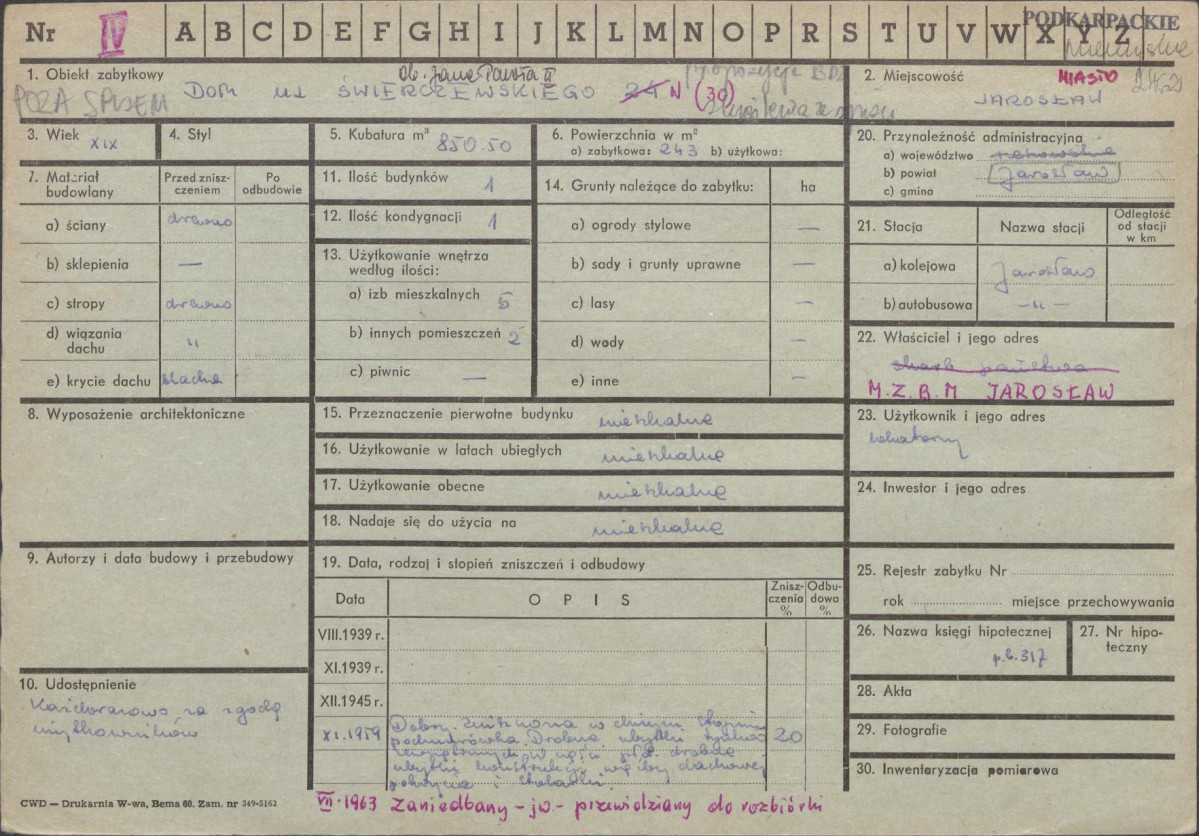 Nr IV A B C D E F G H I J K L M N O P R S T U V W X Y Z PODKARPACKIE
1. Obiekt zabytkowy
POZA SPISEM
DOM UL ŚWIERCZEWSKIEGO 24 N (30)
ob. Jana Pawła II
propozycja
2. Miejscowość MIASTO
JAROSŁAW
3. Wiek XIX
4. Styl
5. Kubatura m³ 850.50
6. Powierzchnia w m²
a) zabytkowa: 243 b) użytkowa:
7. Materiał budowlany
Przed zniszczeniem
Po odbudowie
a) ściany drewno
b) sklepienia —
c) stropy drewno
d) wiązania dachu "
e) krycie dachu blacha
8. Wyposażenie architektoniczne
9. Autorzy i data budowy i przebudowy
10. Udostępnienie
Każdorazowo za zgodą
użytkowników
11. Ilość budynków 1
12. Ilość kondygnacji 1
13. Użytkowanie wnętrza
według ilości:
a) izb mieszkalnych 5
b) innych pomieszczeń 2
c) piwnic —
14. Grunty należące do zabytku: ha
a) ogrody stylowe —
b) sady i grunty uprawne —
c) lasy —
d) wody —
e) inne —
15. Przeznaczenie pierwotne budynku mieszkalne
16. Użytkowanie w latach ubiegłych mieszkalne
17. Użytkowanie obecne mieszkalne
18. Nadaje się do użycia na mieszkalne
19. Data, rodzaj i stopień zniszczeń i odbudowy
Data OPIS Zniszczenia % Odbudowa %
VIII.1939 r.
XI.1939 r.
XII.1945 r.
XI.1959 Dobry. Zniszczona w dużym stopniu 20
podmurówka. Drobne ubytki
drobne
ubytki konstrukcji więźby dachowej
pokrycia i stolarki.
VII.1963 Zaniedbany - jw. - przewidziany do rozbiórki
20. Przynależność administracyjna
a) województwo rzeszowskie
b) powiat Jarosław
c) gmina
21. Stacja
Nazwa stacji
Odległość od stacji w km
a) kolejowa Jarosław
b) autobusowa -"-
22. Właściciel i jego adres
skarb państwa
M.Z.B.M JAROSŁAW
23. Użytkownik i jego adres
lokatorzy
24. Inwestor i jego adres
25. Rejestr zabytku Nr
rok miejsce przechowywania
26. Nazwa księgi hipotecznej
p.b.317
27. Nr hipoteczny
28. Akta
29. Fotografie
30. Inwentaryzacja pomiarowa
CWD — Drukarnia W-wa, Bema 60. Zam. nr 349-5162